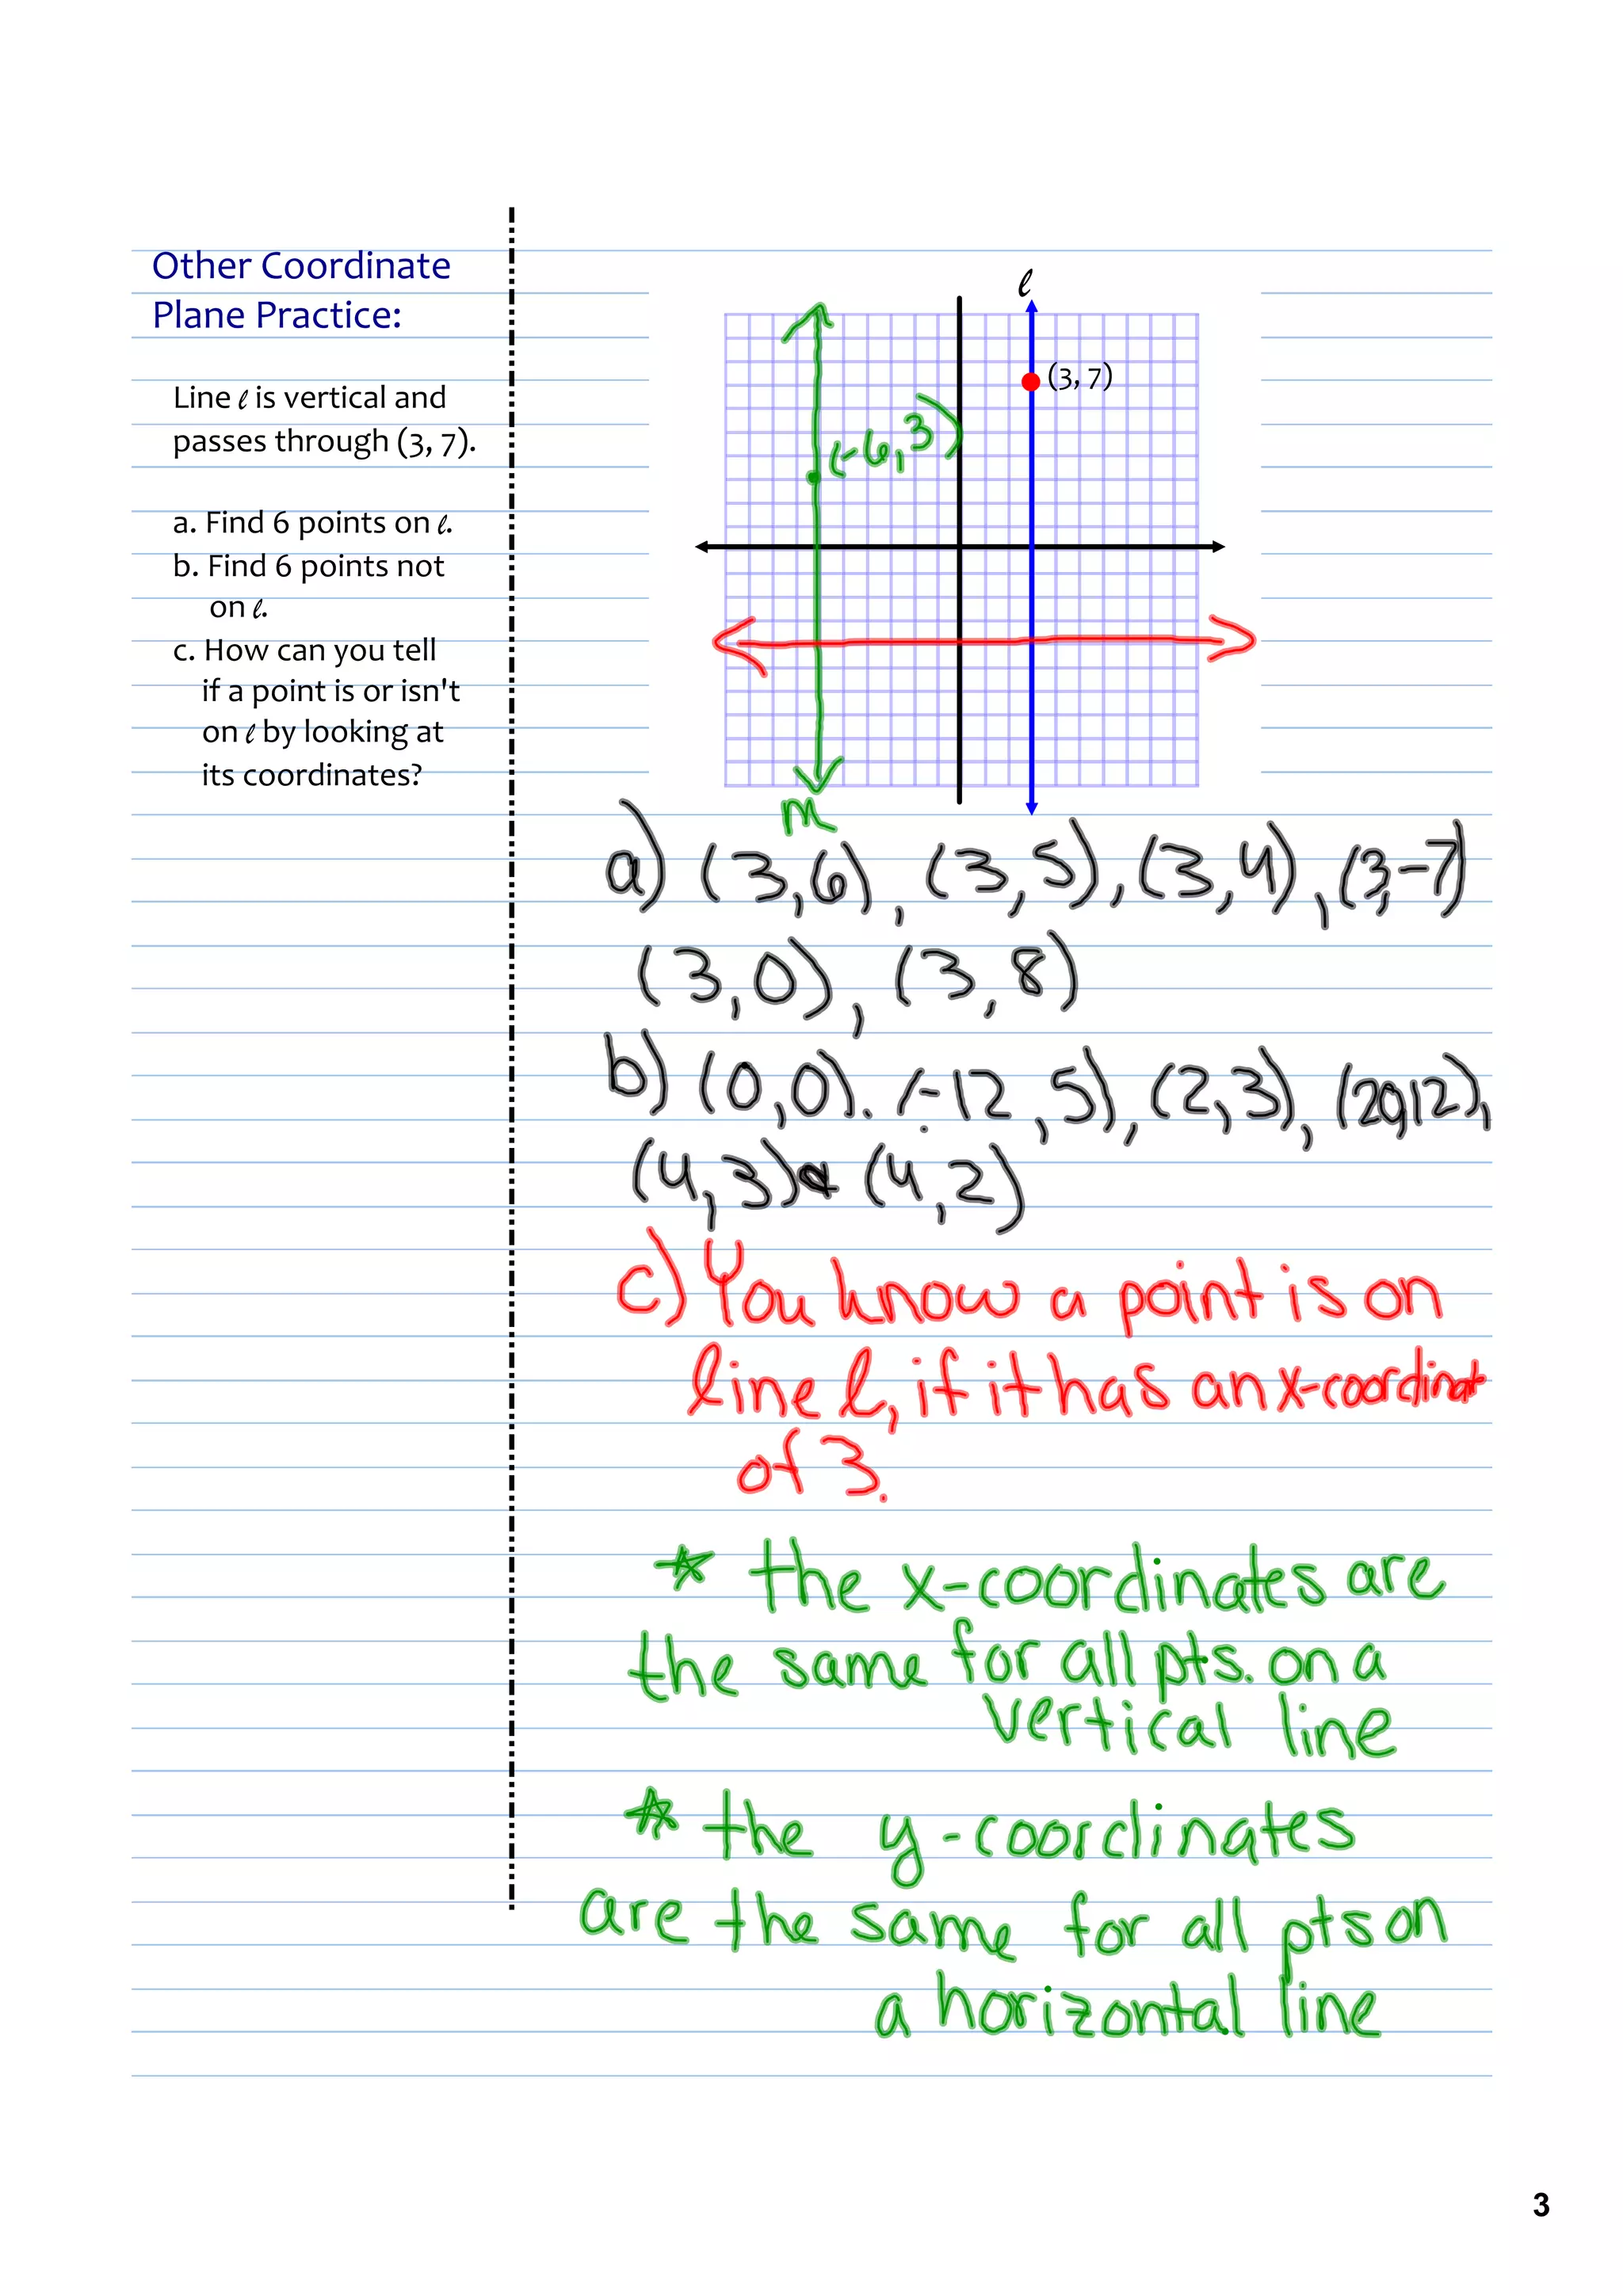 Other Coordinate
Plane Practice:
Line ℓ is vertical and
passes through (3, 7).
a. Find 6 points on ℓ.
b. Find 6 points not
on ℓ.
c. How can you tell
if a point is or isn't
on ℓ by looking at
its coordinates?
ℓ
(3, 7)
(-6,3)
m
a) (3,6), (3,5), (3,4), (3,-7)
(3,0), (3,8)
b) (0,0). (-12,5), (2,3), (20,12),
(4,3) (4,2)
c) You know a point is on
line ℓ, if it has an x-coordinate
of 3.
* the x-coordinates are
the same for all pts. on a
vertical line
* the y-coordinates
are the same for all pts on
a horizontal line
3